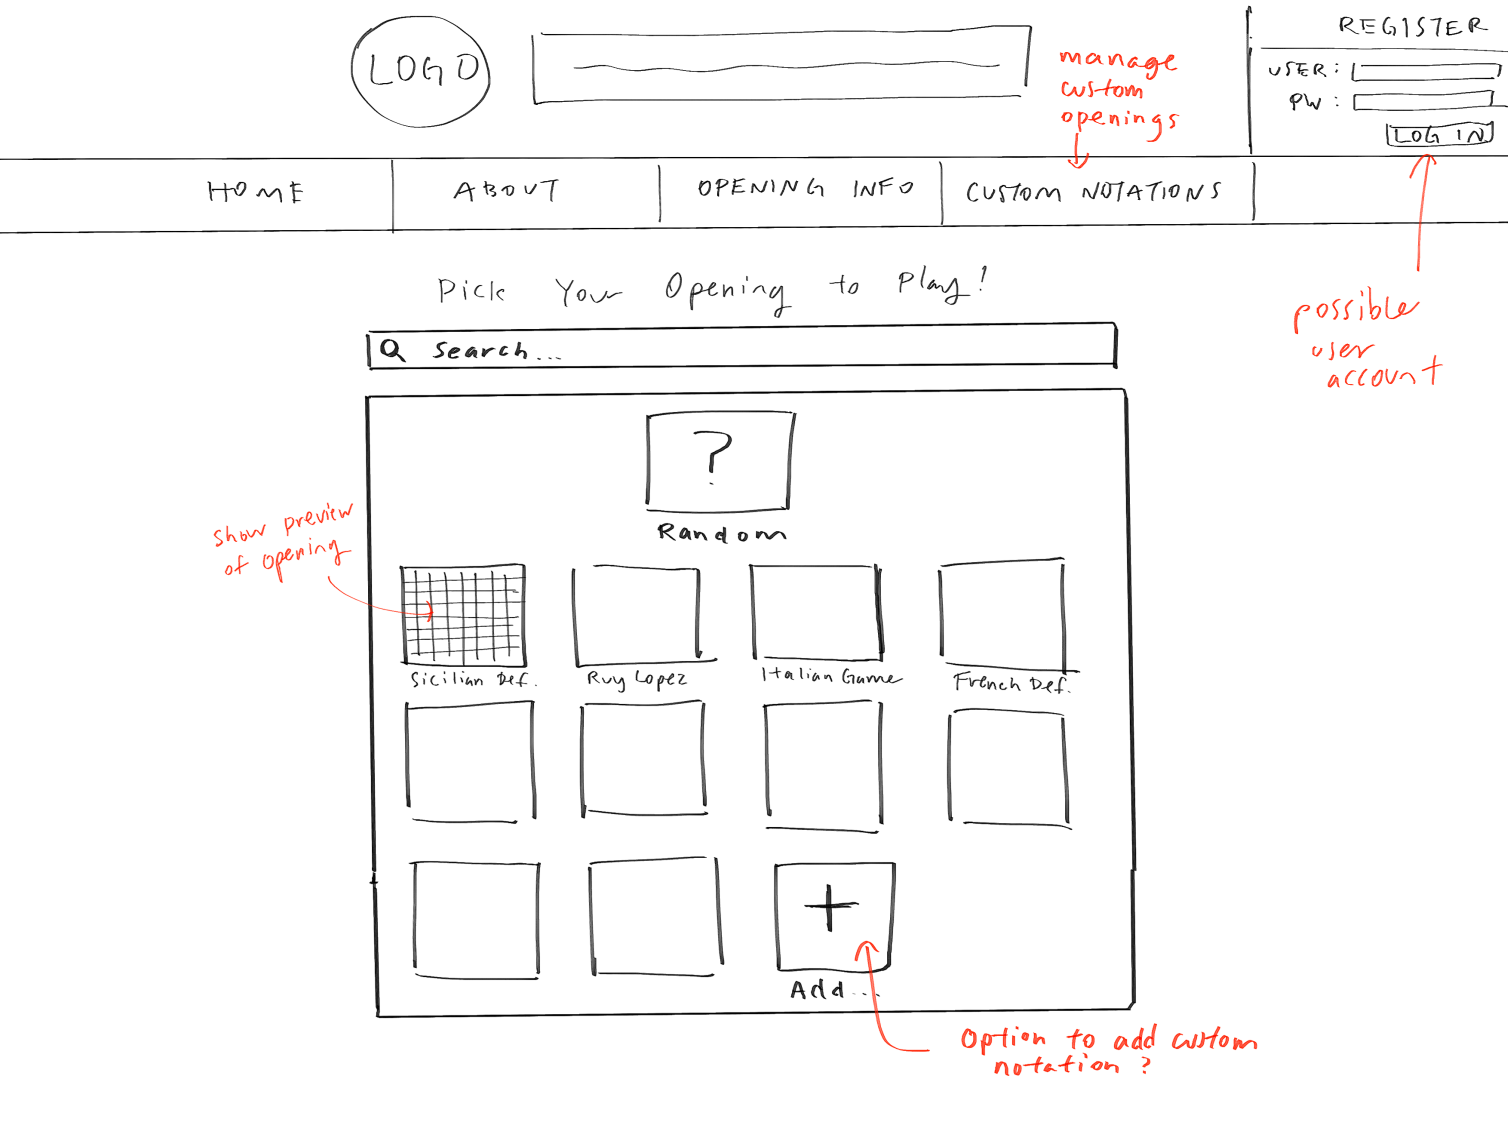 LOGO
manage
custom
openings
REGISTER
USER:
PW:
LOG IN
HOME
ABOUT
OPENING INFO
CUSTOM NOTATIONS
Pick Your Opening to Play!
Search...
possible
user
account
?
Random
show preview
of opening
Sicilian Def.
Ruy Lopez
Italian Game
French Def.
+
Add...
Option to add custom
notation?